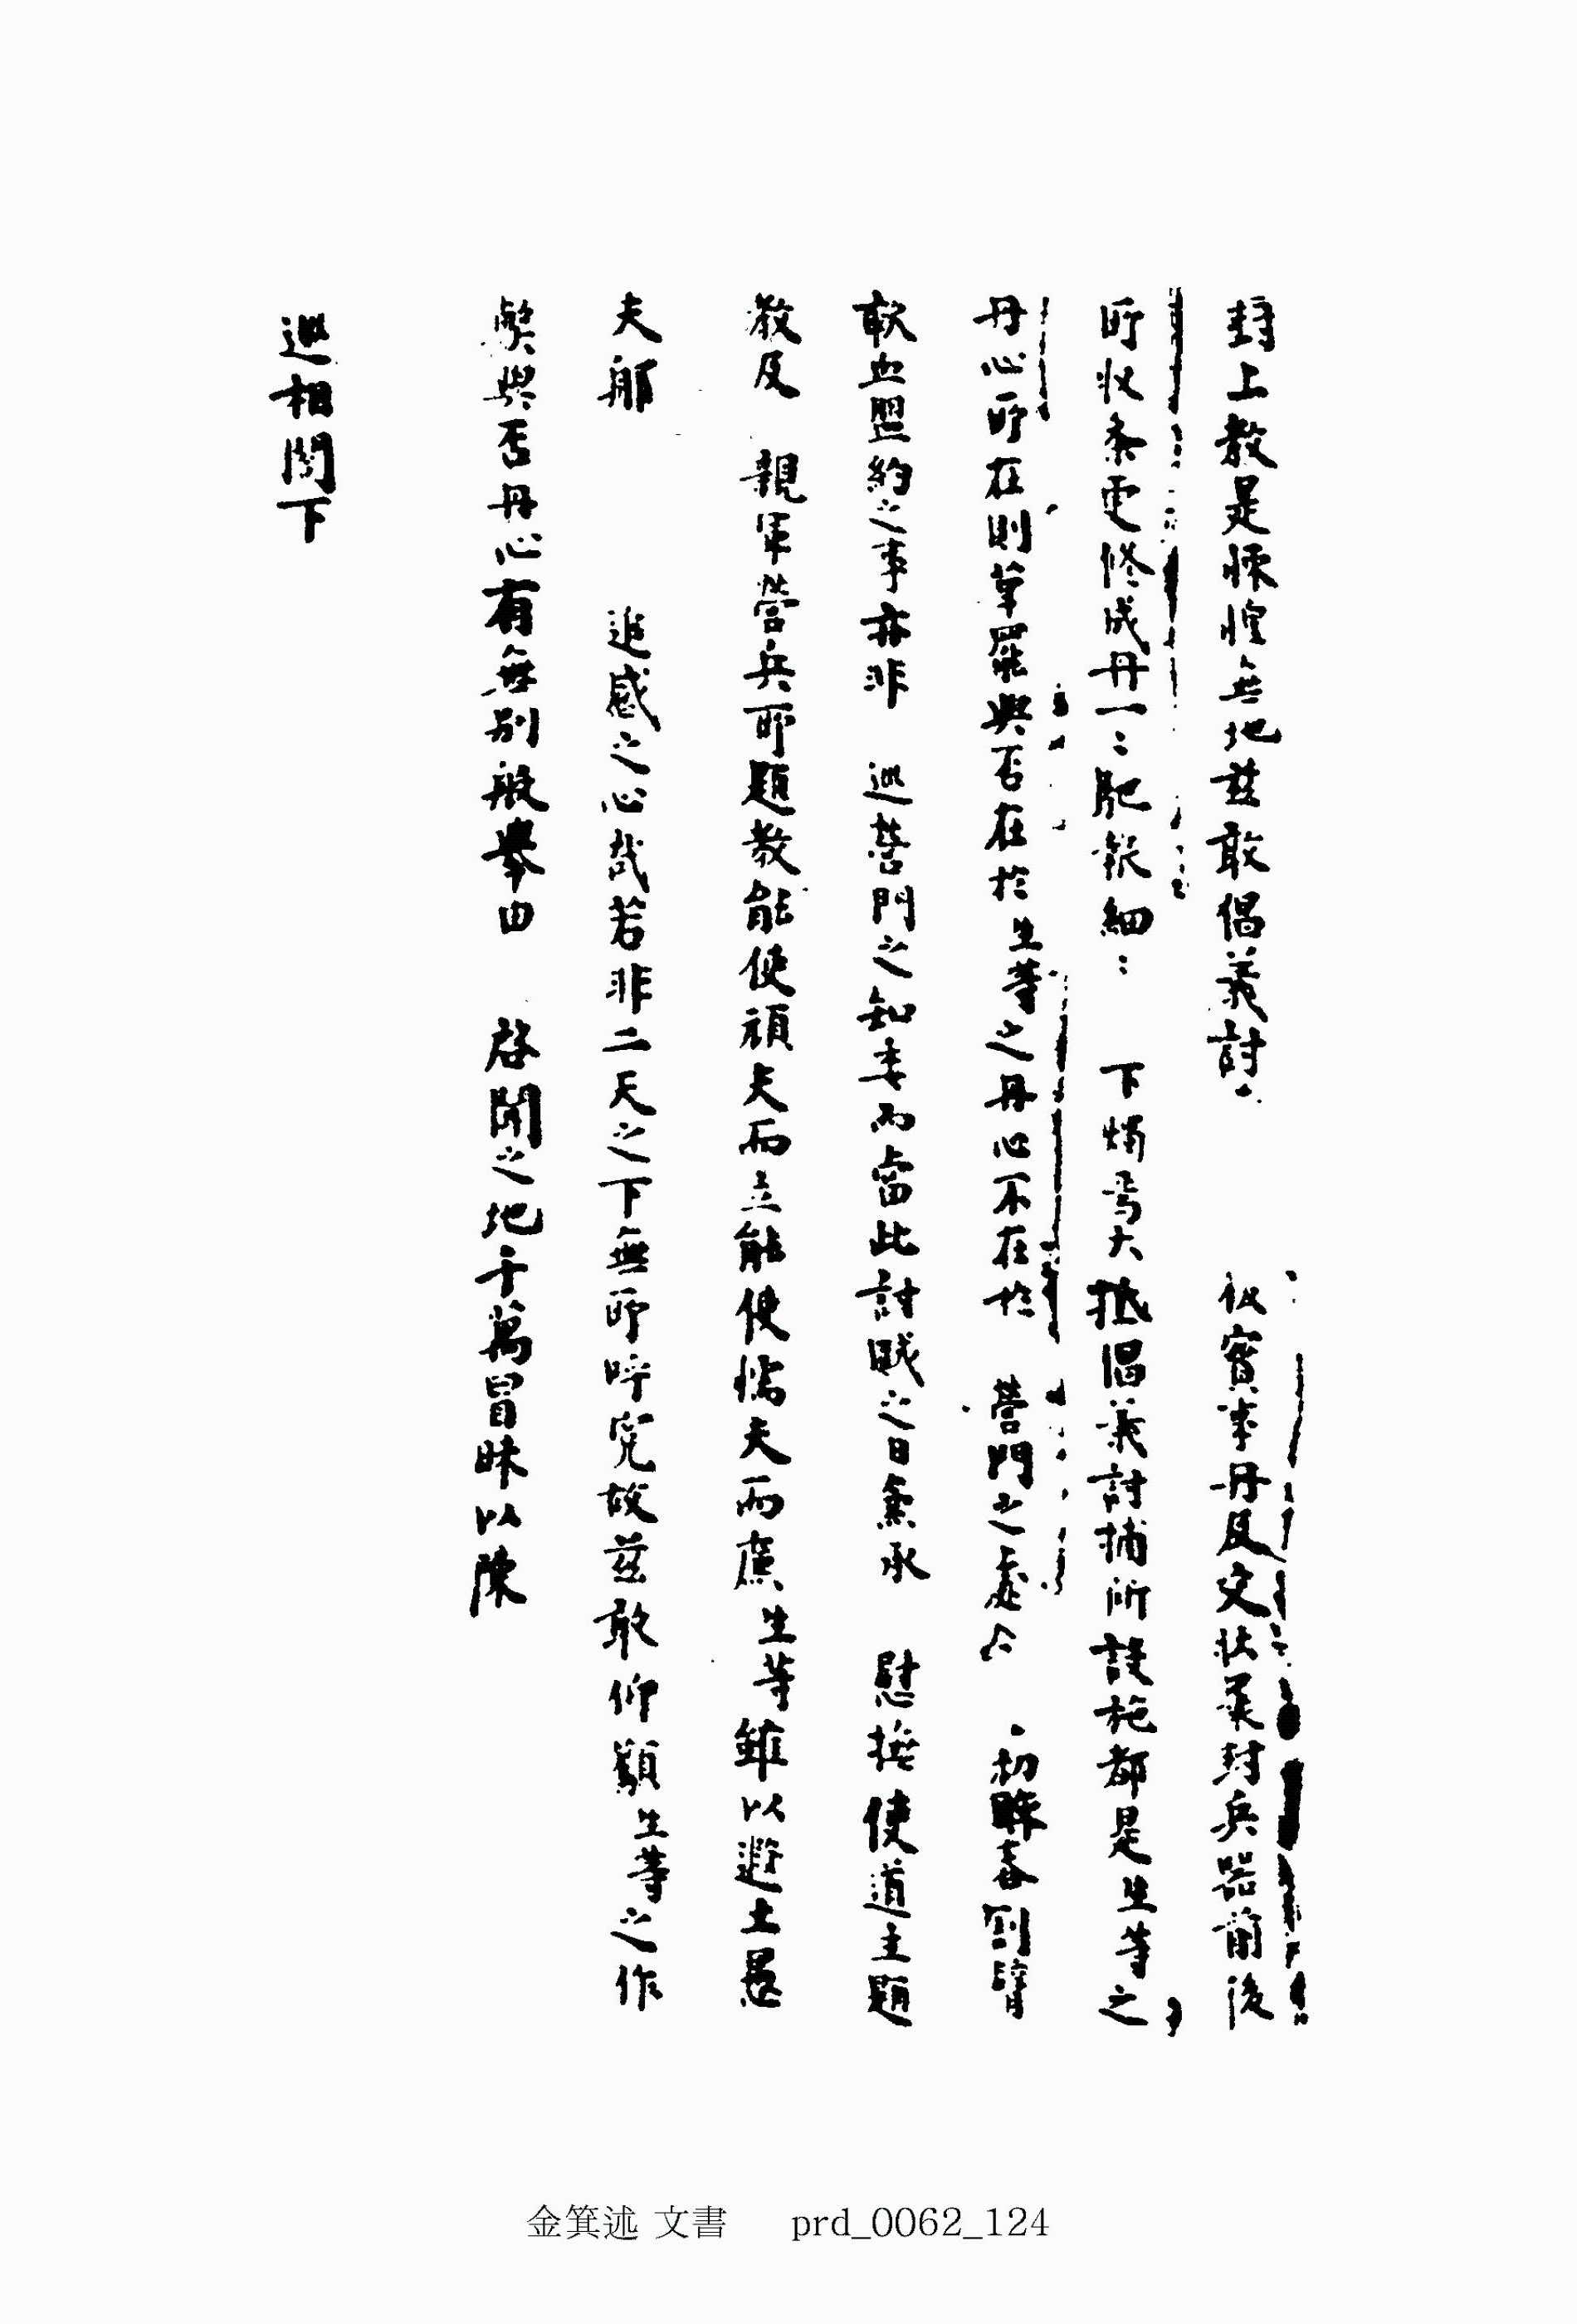 封上教是悚惶無地玆敢倡義討 仪實事冊及文狀柔封兵器前後
所收条更修成冊一〻馳報細〻 下燭焉大抵倡義討捕所設施都是生等之
丹心所在則革罷與否在於生等之丹心不在於 營門之處 初歃春割臂
歃血盟約之事亦非 巡營門之知委而當此討賊之日兼承 慰撫使道主題
教及 親軍營兵所題教能使頑夫而立能使懦夫而廉生等雖以遐土愚
夫那 追感之心哉若非二天之下無所呼寃故玆敢仰顒生等之作
契與否丹心有無別般擧由 啓聞之地千萬冒昧以陳
巡相閤下
金箕述 文書 prd_0062_124